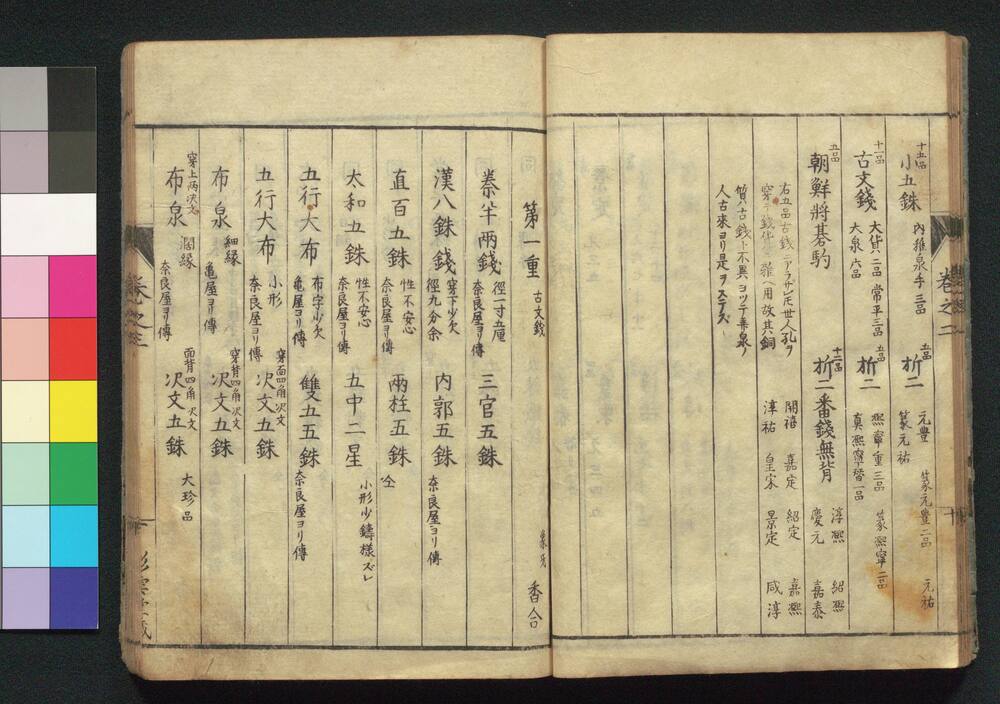 十五品
小五銖
内稚泉手三品
五品
折二
元豊
篆元豊二品
元祐
篆元祐
十一品
古文錢
大貨二品 常平三品
大泉六品
五品
折二
熙寧重三品
篆熙寧二品
真熙寧替一品
五品
朝鮮將碁駒
十二品
折二番錢無背
淳熙
紹熙
慶元
嘉泰
開禧
嘉定
紹定
嘉熙
淳祐
皇宋
景定
咸淳
右五品古錢ニアラザレ圧世人孔ヲ
穿テ錢
ヘ用故其銅
質古錢ト不異ヨツテ
泉ノ
人古來ヨリ是ヲステズ
卷之二
第一重
古文錢
象牙
香合
秦半兩錢
徑一寸五厘
奈良屋ヨリ傳
三官五銖
漢八銖錢
穿下少欠
徑九分余
内郭五銖
奈良屋ヨリ傳
直百五銖
性不安心
奈良屋ヨリ傳
兩柱五銖
仝
太和五銖
性不安心
奈良屋ヨリ傳
五中二星
小形少鑄樣ズレ
五行大布
布字少欠
亀屋ヨリ傳
雙五五銖
奈良屋ヨリ傳
五行大布
小形
奈良屋ヨリ傳
穿面四角决文
决文五銖
布泉
細縁
亀屋ヨリ傳
穿背四角决文
决文五銖
穿上两决文
布泉
濶縁
奈良屋ヨリ傳
面背四角决文
决文五銖
大珍品
卷之二